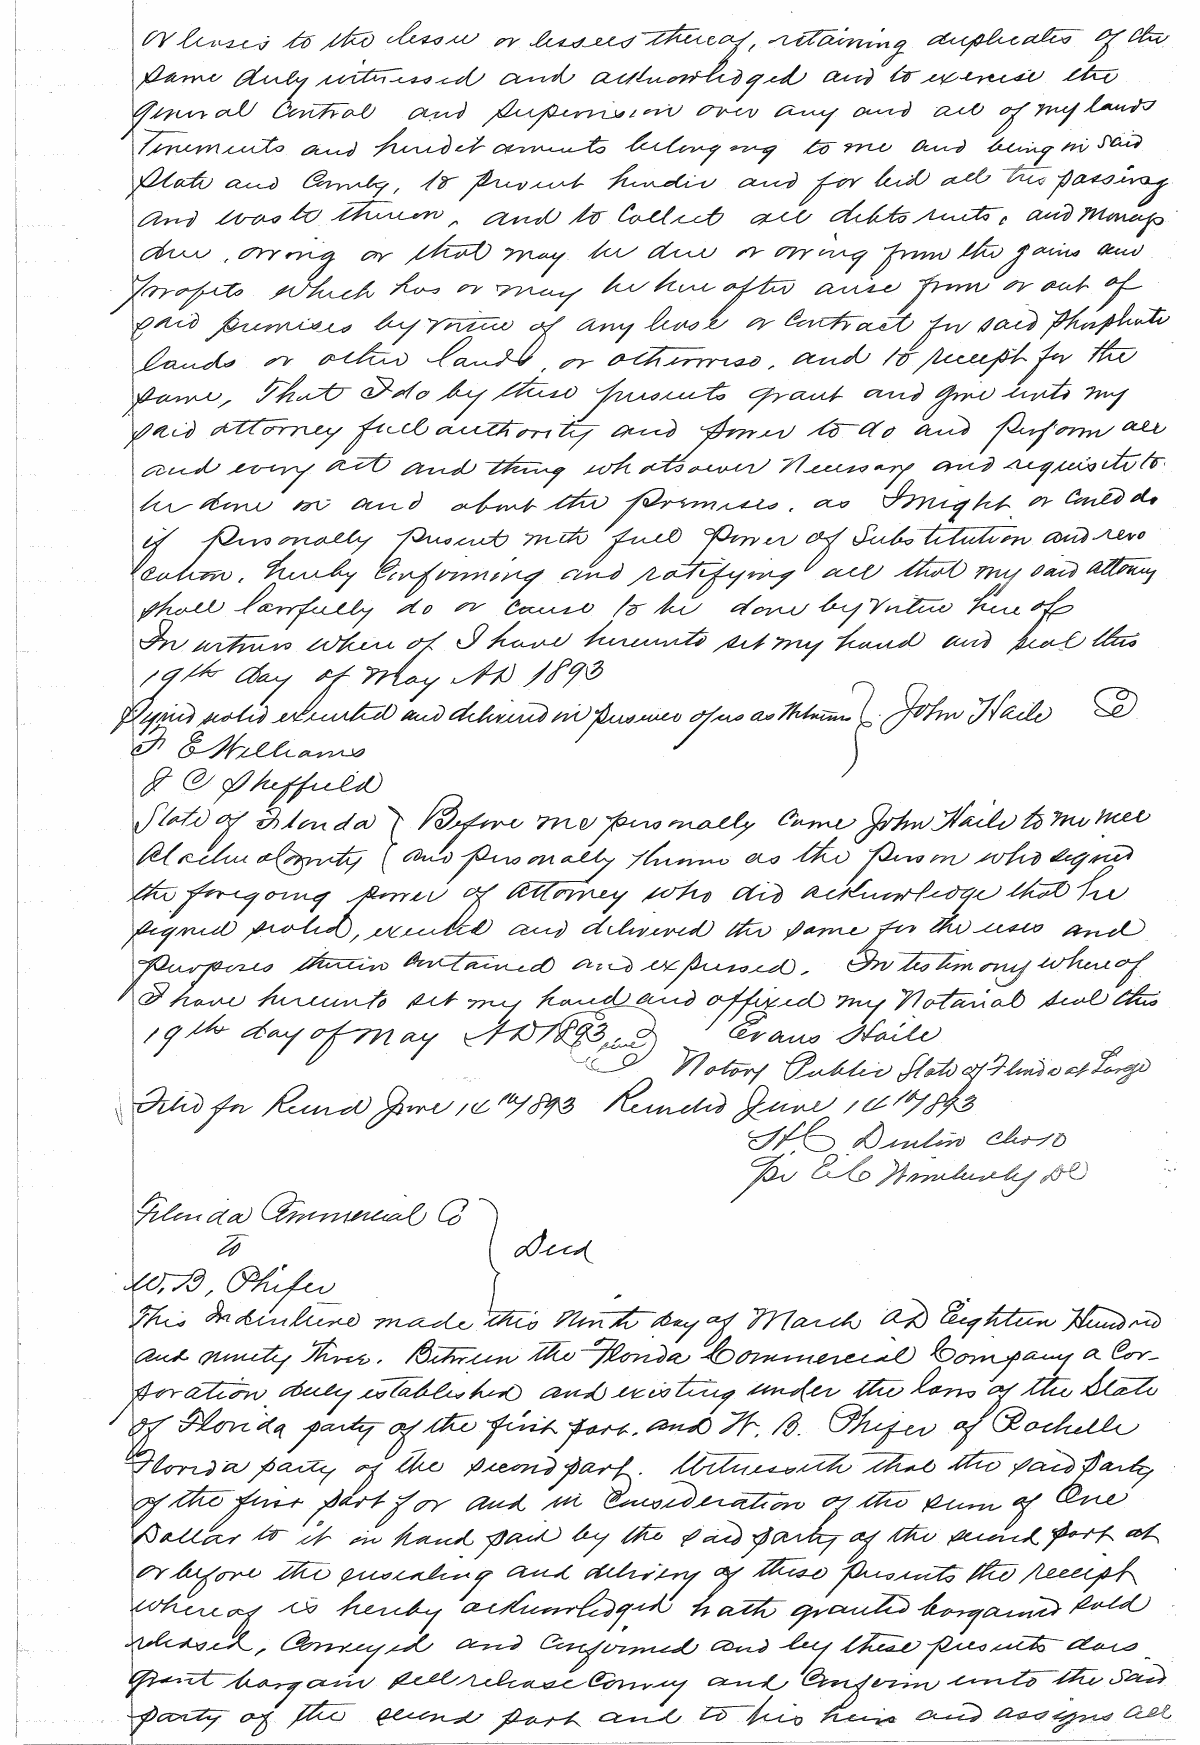 or leases to the lessee or lessees thereof, retaining duplicates of the
same duly witnessed and acknowledged and to exercise the
general Control and Supervision over any and all of my lands
Tenements and heredit aments belonging to me and being in said
State and County, to prevent hinder and for bid all tres passing
and waste thereon, and to Collect all debts rents, and moneys
due, owing or that may be due or owing from the gains and
profits which has or may be here after arise from or out of
said premises by virtue of any lease or Contract for said Phosphate
lands or other lands, or otherwise, and to receipt for the
same, That I do by these presents grant and give unto my
said attorney full authority and power to do and perform all
and every act and thing whatsoever Necessary and requisite to
be done in and about the Premises, as I might or could do
if personally present with full Power of Substitution and revo
cation, hereby Confirming and ratifying all that my said attorney
shall lawfully do or cause to be done by virtue here of
In witness where of I have hereunto set my hand and seal this
19th day of May AD 1893
Signed sealed executed and delivered in presence of us as Witness John Haile
F E Williams
J C Sheffield
State of Florida Before me personally came John Haile to me well
Alachua County and personally known as the person who signed
the foregoing power of attorney who did acknowledge that he
signed sealed, executed and delivered the same for the uses and
purposes therein contained and expressed. In testimony where of
I have hereunto set my hand and affixed my Notarial seal this
19th day of May AD 1893 Evans Haile
Notary Public State of Florida at Large
Filed for Record June 14th 1893 Recorded June 14th 1893
H C Denton
Pr E C Wimberly DC
Florida Commercial Co
to Deed
W. B, Phifer
This Indenture made this Ninth day of March AD Eighteen Hundred
and ninety three. Between the Florida Commercial Company a Cor-
poration duly established and existing under the laws of the State
of Florida party of the first part, and W. B. Phifer of Rochelle
Florida party of the second part. Witnesseth that the said party
of the first part for and in Consideration of the sum of One
Dollar to it in hand paid by the said party of the second part at
or before the ensealing and delivery of these presents the receipt
whereof is hereby acknowledged hath granted bargained sold
released, Conveyed and Confirmed and by these presents does
grant bargain sell release Convey and Confirm unto the said
party of the second part and to his heirs and assigns all